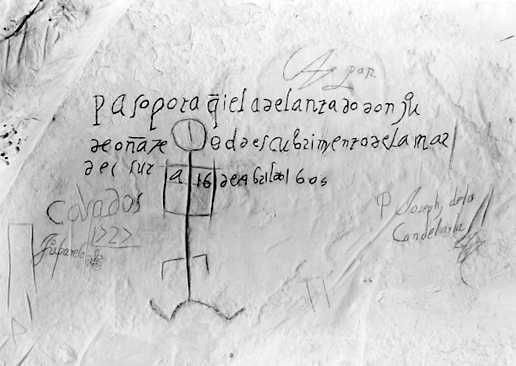 paso por aq̃i el adelantado don jũ
de oñate descubrimento de la mar
del sur a 16 de abril
Casados
1727
P Joseph, de la
Candelaria